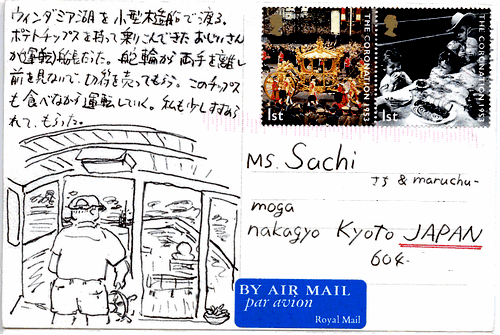 ウィンダミア湖を小型木造船で渡る。
ポテトチップスを持って乗りこんできたおじいさん
が運転)船長だった。舵輪から両手を離し
前を見ないで、切符を売ってもらう。このチップス
も食べながら運転していく。私も少しすすめら
れて、もらった。
THE CORONATION 1953
1st
THE CORONATION 1953
1st
Ms. Sachi
さち & maruchu-
moga
nakagyo Kyoto JAPAN
604-
BY AIR MAIL
par avion
Royal Mail